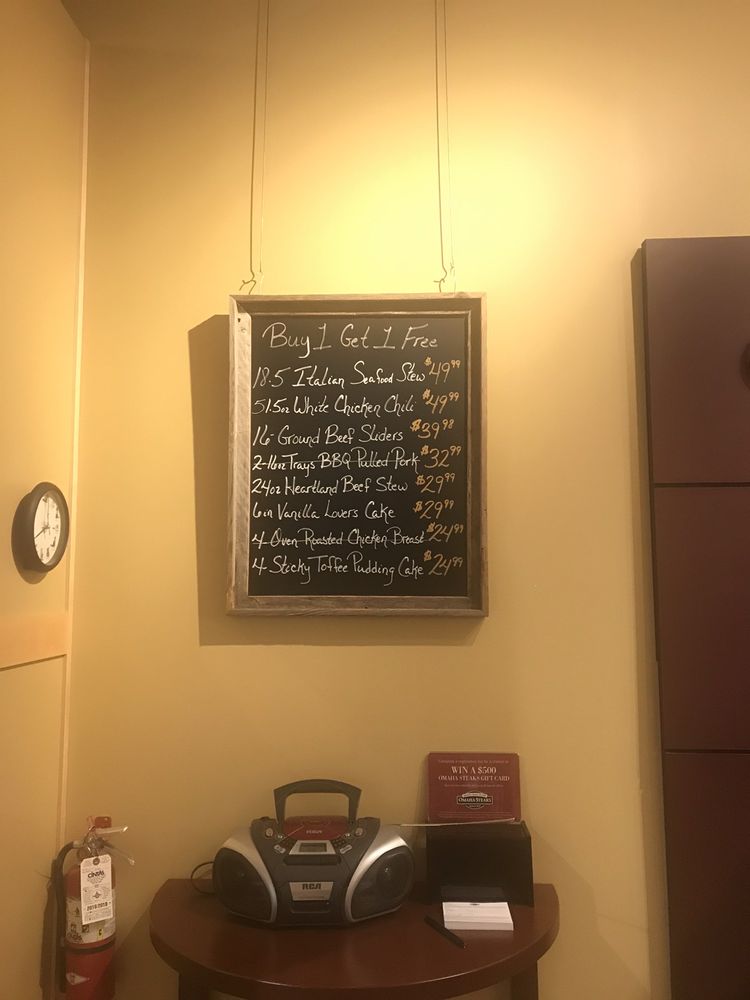 Buy 1 Get 1 Free
18.5 Italian Seafood Stew $49⁹⁹
51.5oz White Chicken Chili $49⁹⁹
16- Ground Beef Sliders $39⁹⁸
2-16oz Trays BBQ Pulled Pork $32⁹⁹
24oz Heartland Beef Stew $29⁹⁹
6in Vanilla Lovers Cake $29⁹⁹
4 Oven Roasted Chicken Breast $24⁹⁹
4- Sticky Toffee Pudding Cake $24⁹⁹
WIN A $500
OMAHA STEAKS GIFT CARD
OMAHA STEAKS
RCA
CINTAS